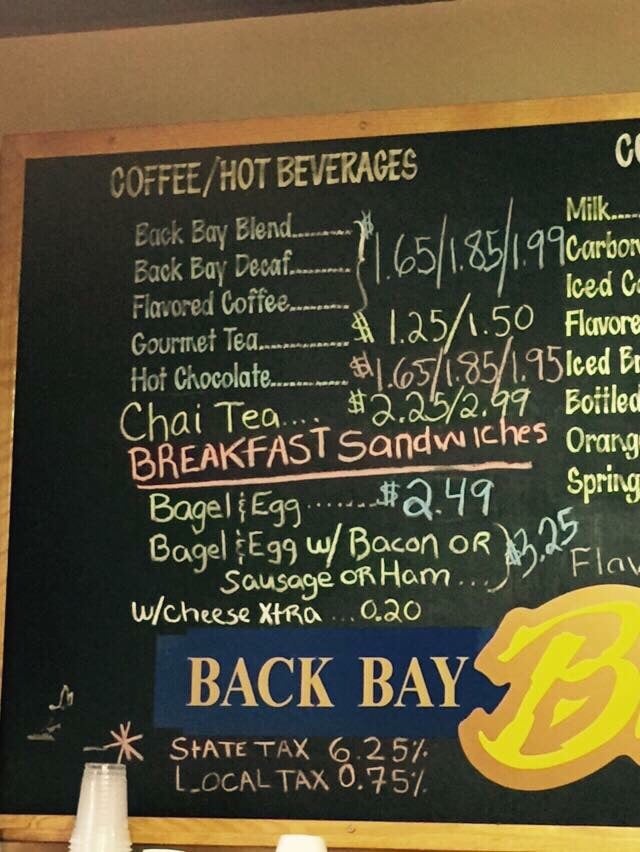 COFFEE/HOT BEVERAGES
Back Bay Blend......... $
Back Bay Decaf......... 1.65/1.85/1.99
Flavored Coffee.........
Gourmet Tea............. $1.25/1.50
Hot Chocolate........... $1.65/1.85/1.95
Chai Tea.... $2.25/2.99
BREAKFAST Sandwiches
Bagel & Egg ........ $2.49
Bagel & Egg w/ Bacon OR $3.25
Sausage OR Ham ...
w/Cheese XtRa ... 0.20
Milk....
Iced
Iced
Flav
BACK BAY
B
* STATE TAX 6.25%
LOCAL TAX 0.75%